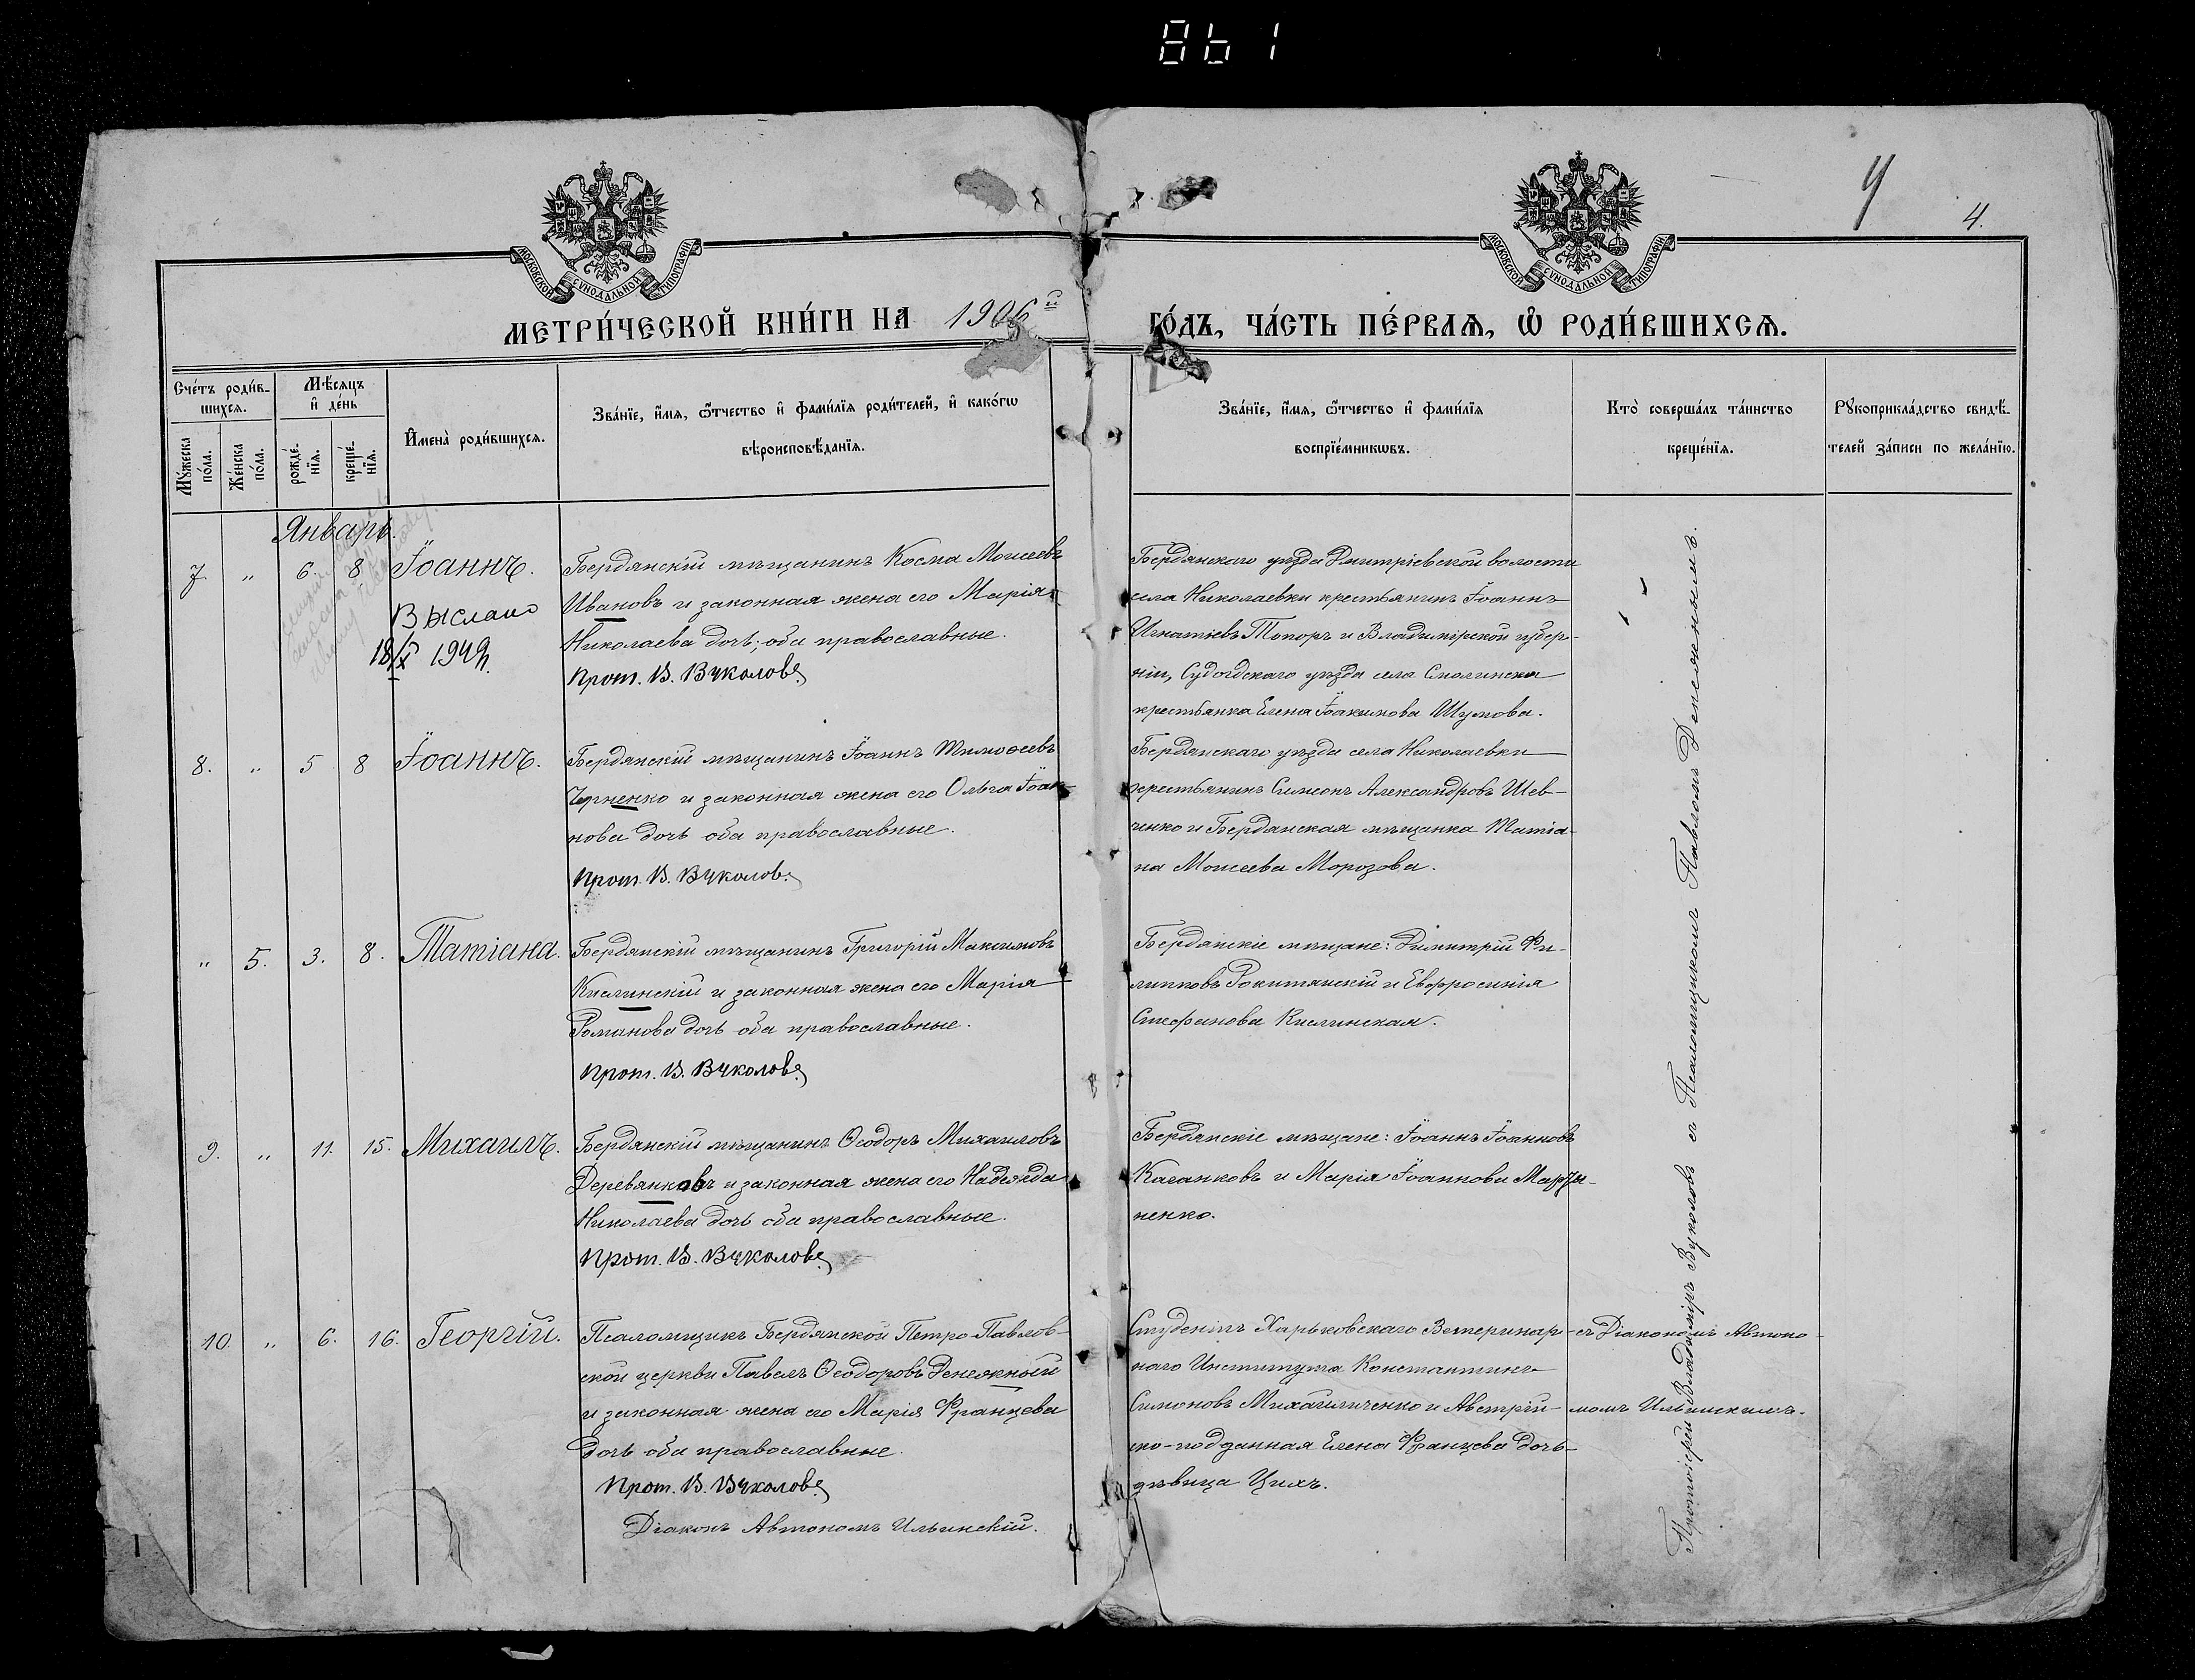 861
4
4.
МОСКОВСКОЙ СѴНОДАЛЬНОЙ ТИПОГРАФІИ
МОСКОВСКОЙ СѴНОДАЛЬНОЙ ТИПОГРАФІИ
МЕТРИ́ЧЕСКОЙ КНИ́ГИ НА 1906й ГО́ДЪ, ЧА́СТЬ ПЕ́РВАѦ, Ѽ РОДИ́ВШИХСѦ.
Сче́тъ роди́в-
шихсѧ.
Мѣ́сѧцъ
и҆ де́нь
Мꙋ́жеска
по́ла.
Же́нска
по́ла.
рожде́-
нїѧ.
креще́-
нїѧ.
И҆мена̀ роди́вшихсѧ.
Зва́нїе, и҆́мѧ, ѻ҆́тчество и҆ фами́лїѧ роди́телей, и҆ како́гѡ
вѣроисповѣ́данїѧ.
Зва́нїе, и҆́мѧ, ѻ҆́тчество и҆ фами́лїѧ
воспрїе́мникѡвъ.
Кто̀ соверша́лъ та́инство
креще́нїѧ.
Рꙋкоприкла́дство свидѣ́-
телей за́писи по жела́нїю.
Январь.
7. " 6. 8 Іоаннъ.
Выслано
18/X 1949
Бердянскій мѣщанинъ Косма Моисеевъ
Ивановъ и законная жена его Марія
Николаева дочь; оба православные.
Прот. В. Вуколовъ
Бердянскаго уѣзда Дмитріевской волости
села Николаевки крестьянинъ Іоаннъ
Игнатіевъ Топоръ и Владимірской губер-
ніи, Судогдскаго уѣзда села Смолинска
крестьянка Елена Іоакимова Шумова.
8. " 5 8 Іоаннъ.
Бердянскій мѣщанинъ Іоаннъ Тимоѳеевъ
Черненко и законная жена его Ольга Іоан-
нова дочь оба православные.
Прот. В. Вуколовъ
Бердянскаго уѣзда села Николаевки
крестьянинъ Симеонъ Александровъ Шев-
ченко и Бердянская мѣщанка Татіа-
на Моисеева Морозова.
" 5. 3. 8. Татіана.
Бердянскій мѣщанинъ Григорій Максимовъ
Кислинскій и законная жена его Марія
Романова дочь оба православные.
Прот. В. Вуколовъ
Бердянскіе мѣщане: Димитрій Фи-
липповъ Рокитянскій и Евфросинія
Стефанова Кислинская.
9. " 11. 15. Михаилъ.
Бердянскій мѣщанинъ Ѳеодоръ Михаиловъ
Деревянковъ и законная жена его Надежда
Николаева дочь оба православные.
Прот. В. Вуколовъ
Бердянскіе мѣщане: Іоаннъ Іоанновъ
Каганковъ и Марія Іоаннова Марты-
ненко.
10. " 6. 16. Георгій.
Псаломщикъ Бердянской Петро-Павлов-
ской церкви Павелъ Ѳеодоровъ Денежный
и законная жена его Марія Францева
дочь оба православные.
Прот. В. Вуколовъ
Діаконъ Автономъ Ильинскій.
Студентъ Харьковскаго Ветеринар-
наго Института Константинъ
Симоновъ Михайличенко и Австрій-
ско-подданная Елена Францева дочь
дѣвица Цихъ.
съ Діакономъ Автоно-
момъ Ильинскимъ.
Протоіерей Владиміръ Вуколовъ съ Псаломщикомъ Павломъ Денежнымъ.